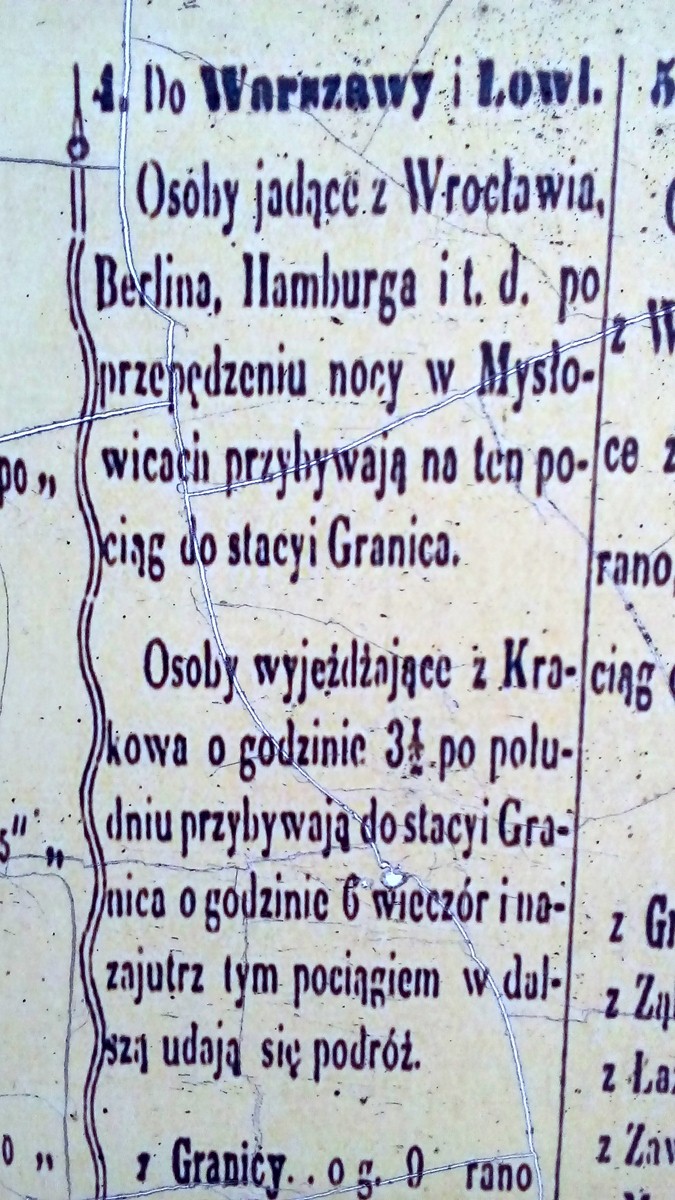 4. Do Warszawy i Łowi.
Osoby jadące z Wrocławia,
Berlina, Hamburga i t. d. po
przepędzeniu nocy w Mysło-
wicach przybywają na ten po-
ciąg do stacyi Granica.
Osoby wyjeżdżające z Kra-
kowa o godzinie 3½ po połu-
dniu przybywają do stacyi Gra-
nica o godzinie 6 wieczór i na-
zajutrz tym pociągiem w dal-
szą udają się podróż.
z Granicy. . o g. 0 rano
po „
s" „
o „
5
z W
ce z
rano,
ciąg
z Gr
z Ząb
z Łaz
z Zaw